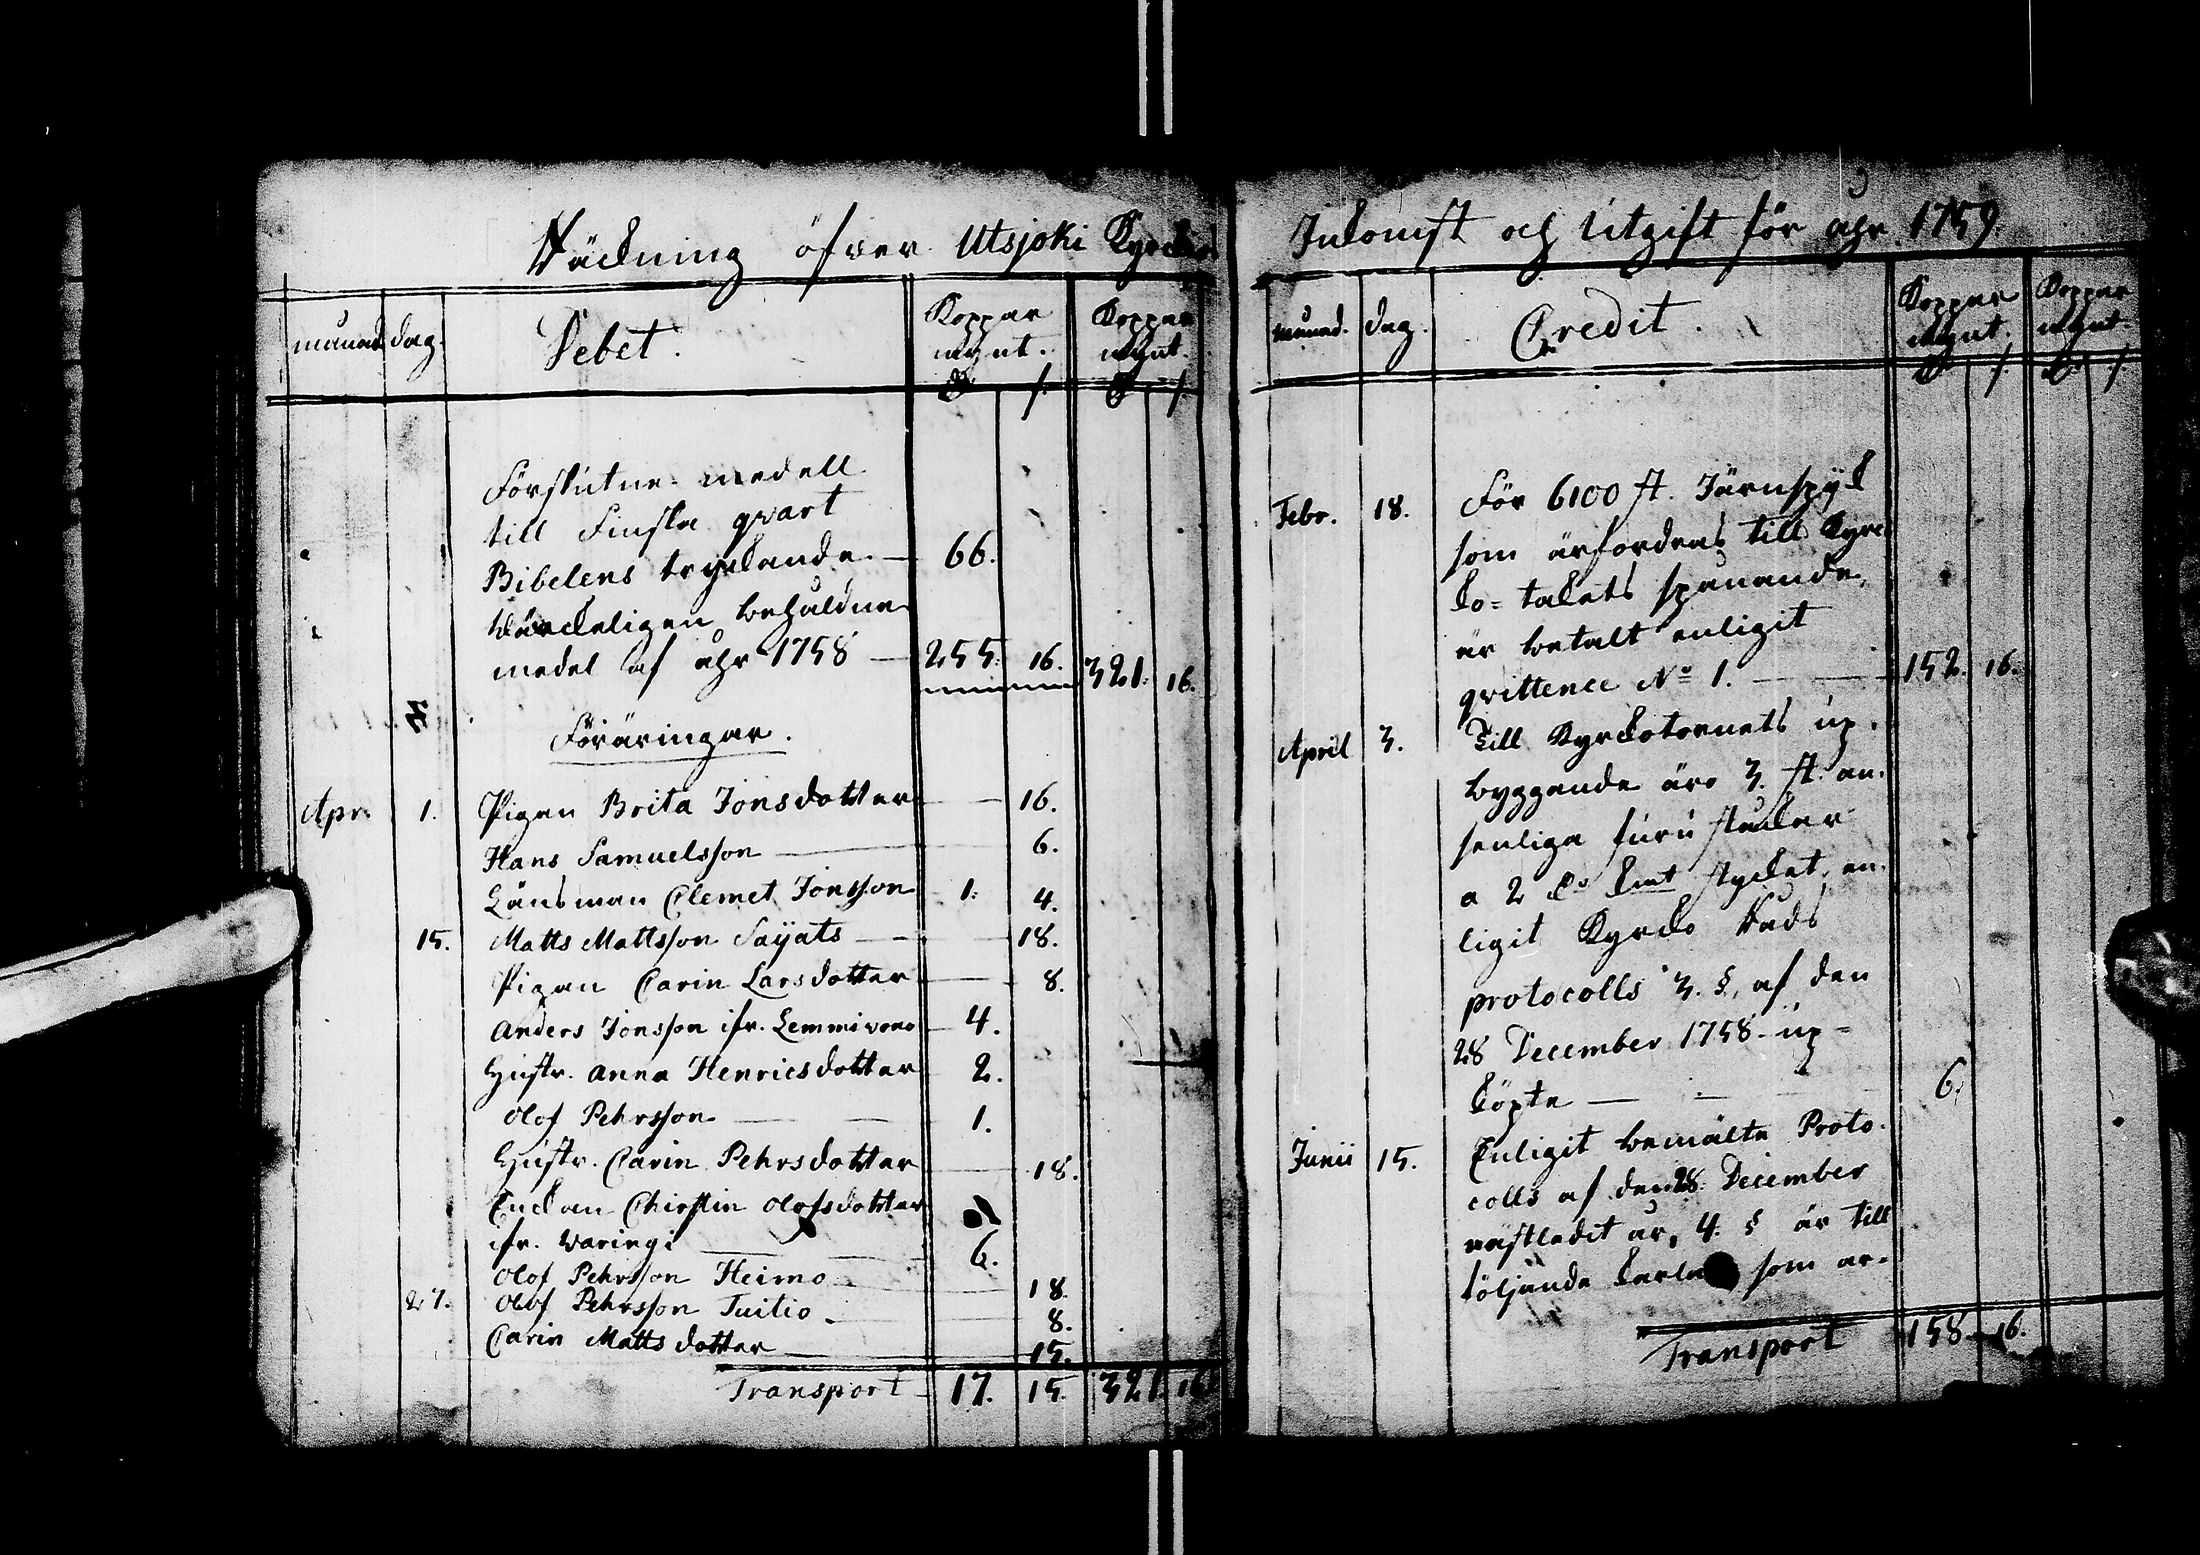 Räckning öfwer Utsjoki Kyrckio
månad dag. Debet. Koppar mynt. Koppar mynt.
Förskutne medell
till Finska qvart
Bibelens tryckande — 66.
Wärckeligen behåldne
medel af åhr 1758 — 255. 16. 321. 16.
Föräringar.
Apr. 1. Pigan Brita Jonsdotter — 16.
Hans Samuelsson — 6.
Länsman Clemet Jonsson 1. 4.
15. Matts Mattsson Saijats — 18.
Pigan Carin Larsdotter — 8.
Anders Jonsson ifr. — 4.
Hustr. Anna Henricsdotter 2.
Olof Pehrsson — 1.
Hustr. Carin Pehrsdotter — 18.
Enckan Chirstin Olofsdotter
ifr. Waringi — 6.
Olof Pehrsson Heimo — 18.
27. Olof Pehrsson Tuitio — 8.
Carin Mattsdotter — 15.
Transport — 17. 15. 321. 16
Inkomst och Utgift för åhr 1759
månad. dag. Credit. Koppar mynt. Koppar mynt.
Febr. 18. För 6100 st. Järnspijk
som ärfordras till Kyrc-
ko-takets spånande,
är betalt enligit
qvittence No 1. — 152. 16.
April 3. Till Kyrckotornets up-
byggande äro 3. st. an-
senliga furu stockar
a 2 Dr kmt stycket, en-
ligit Kyrcko Råds
protocolls 3. §. af den
28 December 1758 up-
köpte — 6.
Junii 15. Enligit bemälte Proto-
colls af den 28. December
nästledit år, 4. § är till
följande karlar som ar-
Transport 158. 16.